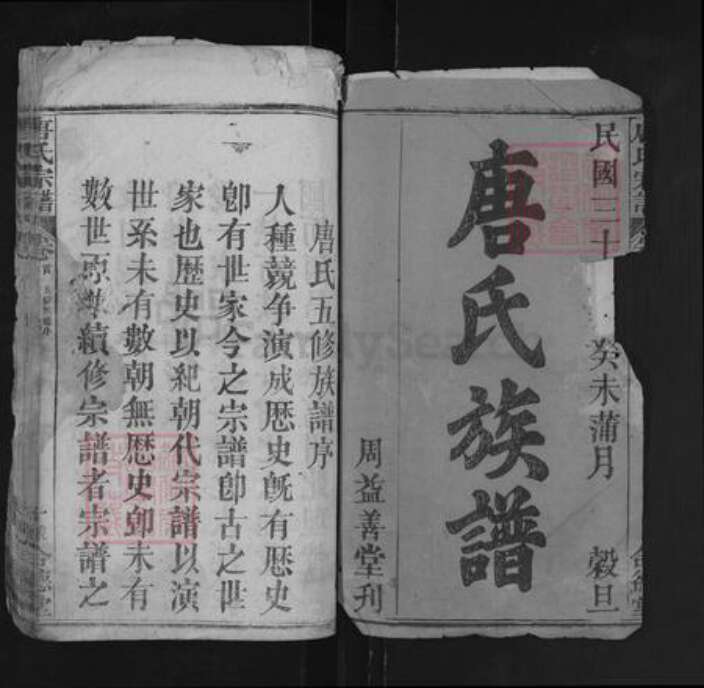 民國三十
癸未蒲月
穀旦
唐氏族譜
周益善堂刊
唐氏五修族譜序
人種競争演成歷史旣有歷史
卽有世家今之宗譜卽古之世
家也歷史以紀朝代宗譜以演
世系未有數朝無歷史卽未有
數世不續修宗譜者宗譜之
唐氏宗譜